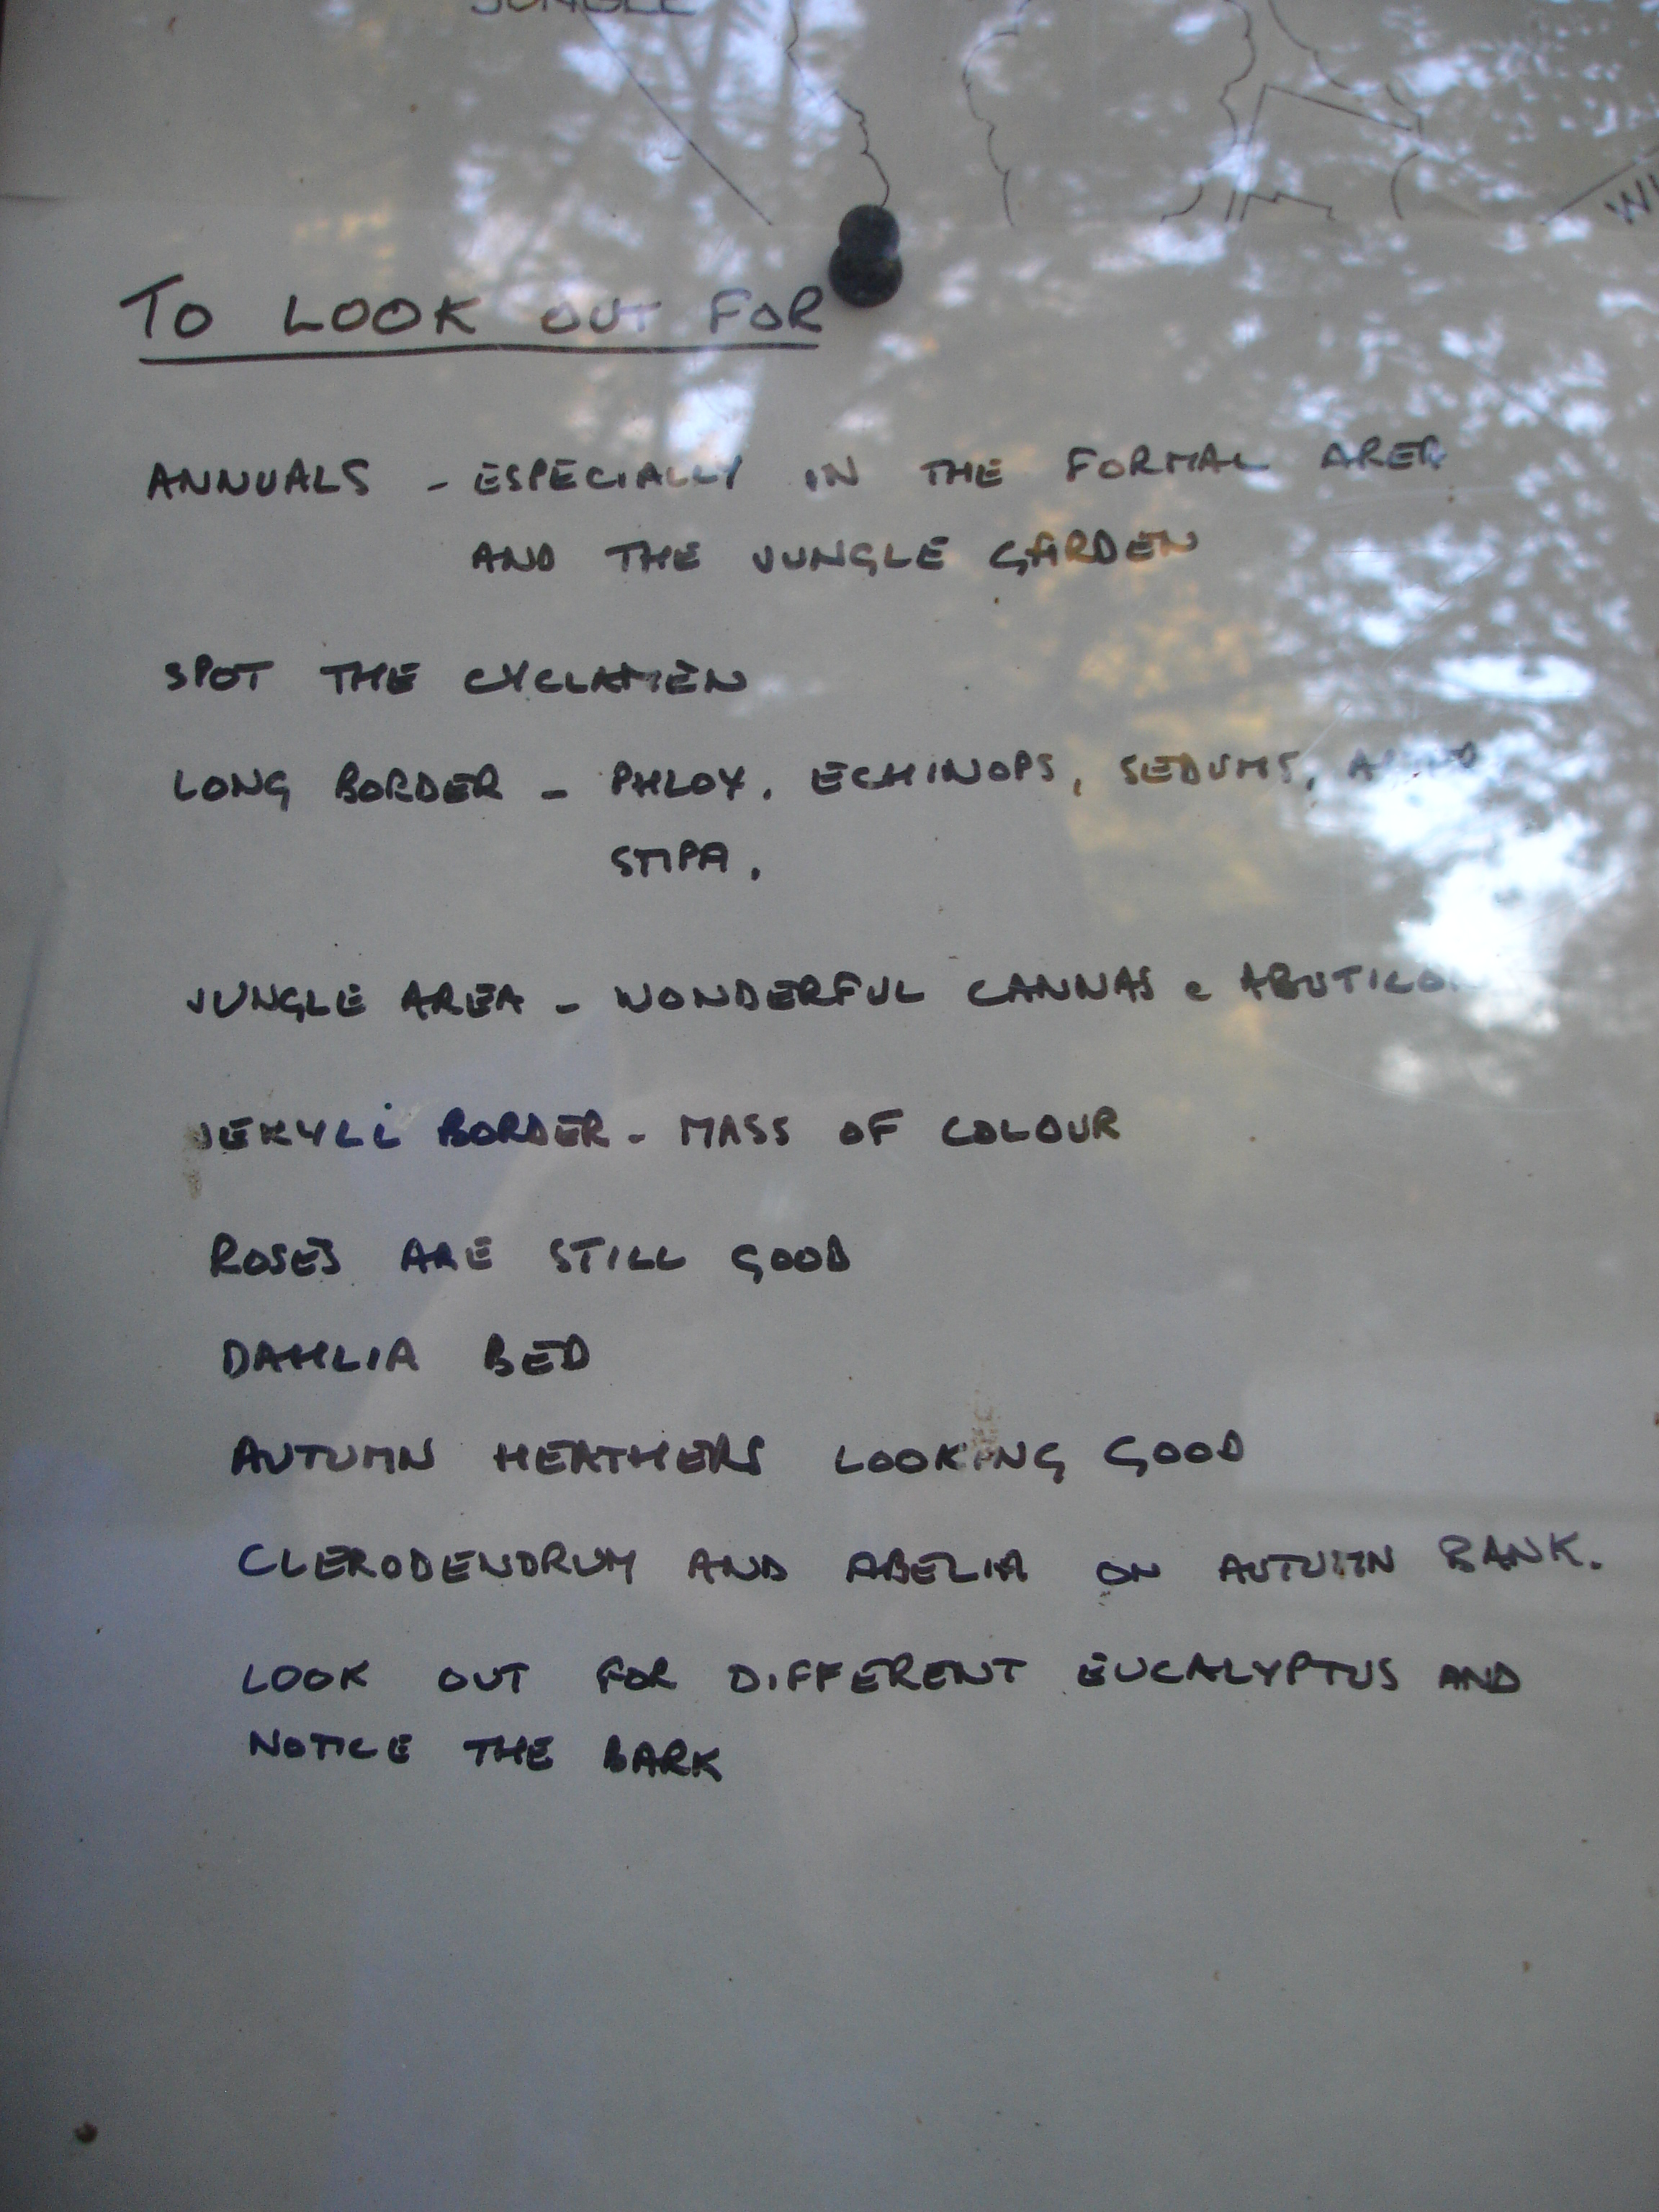 JUNGLE
TO LOOK OUT FOR
ANNUALS - ESPECIALLY IN THE FORMAL AREA
AND THE JUNGLE GARDEN
SPOT THE CYCLAMEN
LONG BORDER - PHLOX, ECHINOPS, SEDUMS,
STIPA.
JUNGLE AREA - WONDERFUL CANNAS & ABUTILON
JEKYLL BORDER - MASS OF COLOUR
ROSES ARE STILL GOOD
DAHLIA BED
AUTUMN HEATHERS LOOKING GOOD
CLERODENDRUM AND ABELIA ON AUTUMN BANK.
LOOK OUT FOR DIFFERENT EUCALYPTUS AND
NOTICE THE BARK